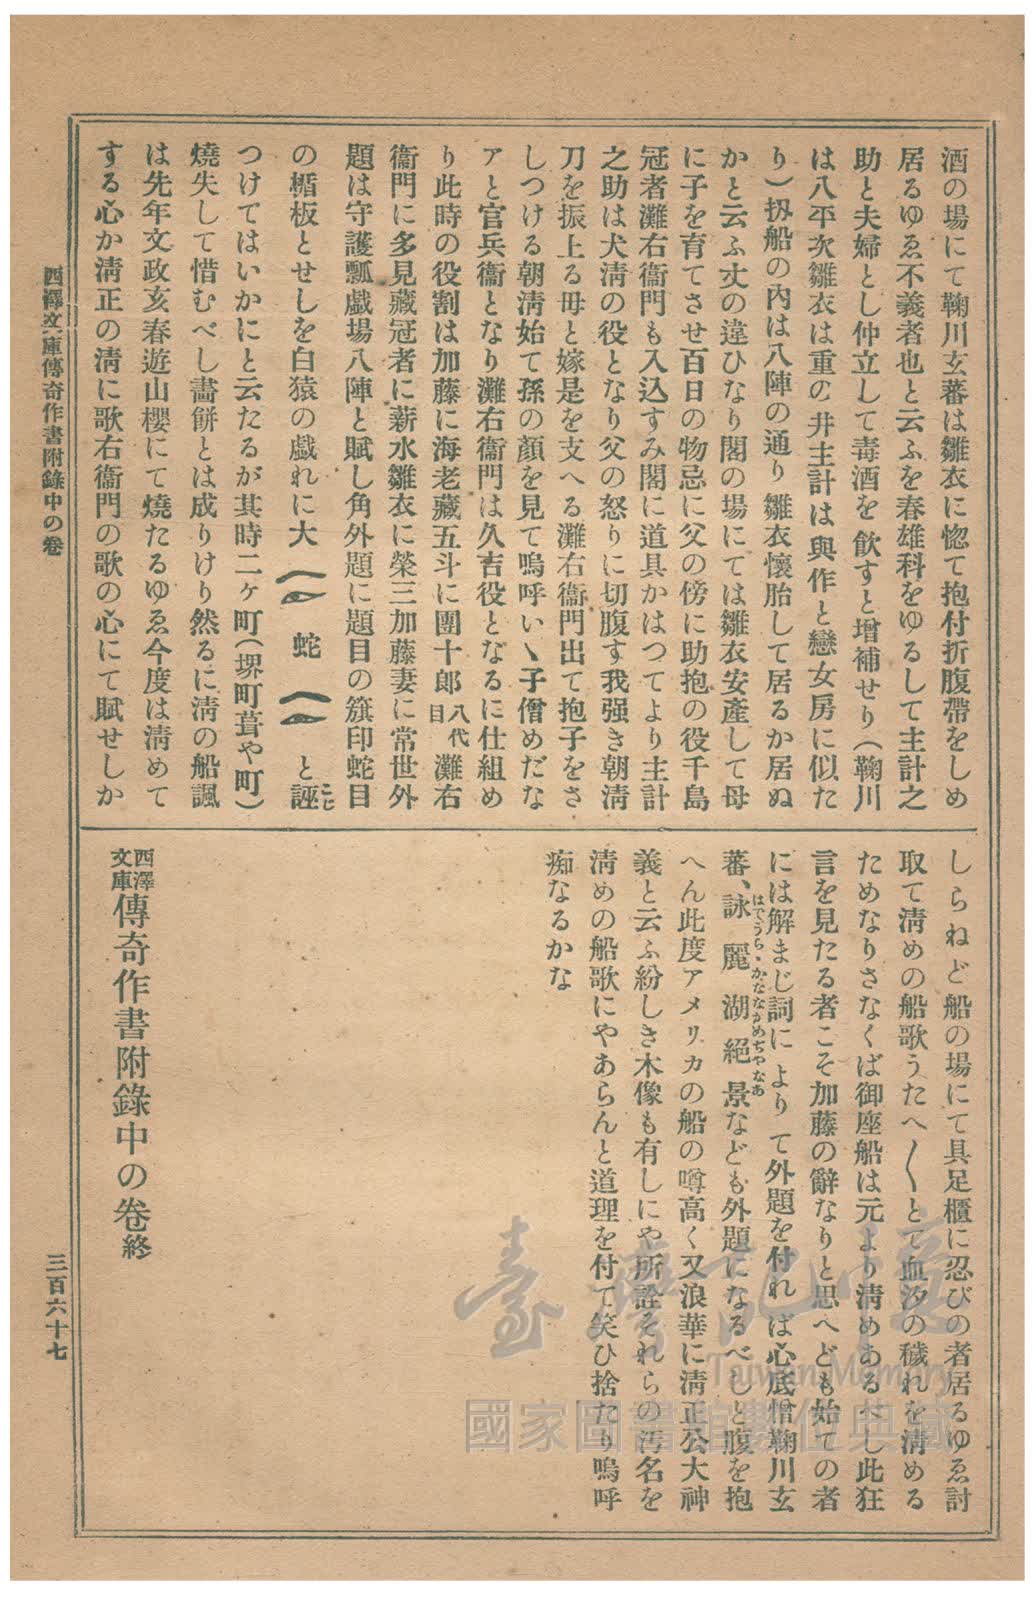 酒の場にて鞠川玄蕃は雛衣に惚て抱付折腹帶をしめ
居るゆゑ不義者也と云ふを春雄科をゆるして主計之
助と夫婦とし仲立して毒酒を飮すと增補せり（鞠川
は八平次雛衣は重の井主計は與作と戀女房に似た
り）扨船の內は八陣の通り雛衣懷胎して居るか居ぬ
かと云ふ丈の違ひなり閣の場にては雛衣安產して母
に子を育てさせ百日の物忌に父の傍に助抱の役千島
冠者灘右衞門も入込すみ閣に道具かはつてより主計
之助は犬淸の役となり父の怒りに切腹す我强き朝淸
刀を振上る母と嫁是を支へる灘右衞門出て抱子をさ
しつける朝淸始て孫の顏を見て嗚呼いゝ子僧めだな
アと官兵衞となり灘右衞門は久吉役となるに仕組め
り此時の役割は加藤に海老藏五斗に團十郞八代目灘右
衞門に多見藏冠者に薪水雛衣に榮三加藤妻に常世外
題は守護瓢戲場八陣と賦し角外題に題目の籏印蛇目
の楯板とせしを白猿の戲れに大　蛇　と誣こじ
つけてはいかにと云たるが其時二ヶ町（堺町葺や町）
燒失して惜むべし畵餠とは成りけり然るに淸の船諷
は先年文政亥春遊山櫻にて燒たるゆゑ今度は淸めて
する心か淸正の淸に歌右衞門の歌の心にて賦せしか
しらねど船の場にて具足櫃に忍びの者居るゆゑ討
取て淸めの船歌うたへ〱とて血汐の穢れを淸める
ためなりさなくば御座船は元より淸めあるべし此狂
言を見たる者こそ加藤の辭なりと思へども始ての者
には解まじ詞によりて外題を付れば心底憎鞠川玄
蕃、詠麗湖絕景はでうら・かななかめぢやなあなども外題になるべしと腹を抱
へん此度アメリカの船の噂高く又浪華に淸正公大神
義と云ふ紛しき木像も有しにや所詮それらの汚名を
淸めの船歌にやあらんと道理を付て笑ひ捨たり嗚呼
痴なるかな
西澤文庫傳奇作書附錄中の卷終
西澤文庫傳奇作書附錄中の卷
三百六十七
臺灣記憶
Taiwan Memory
國家圖書館數位典藏